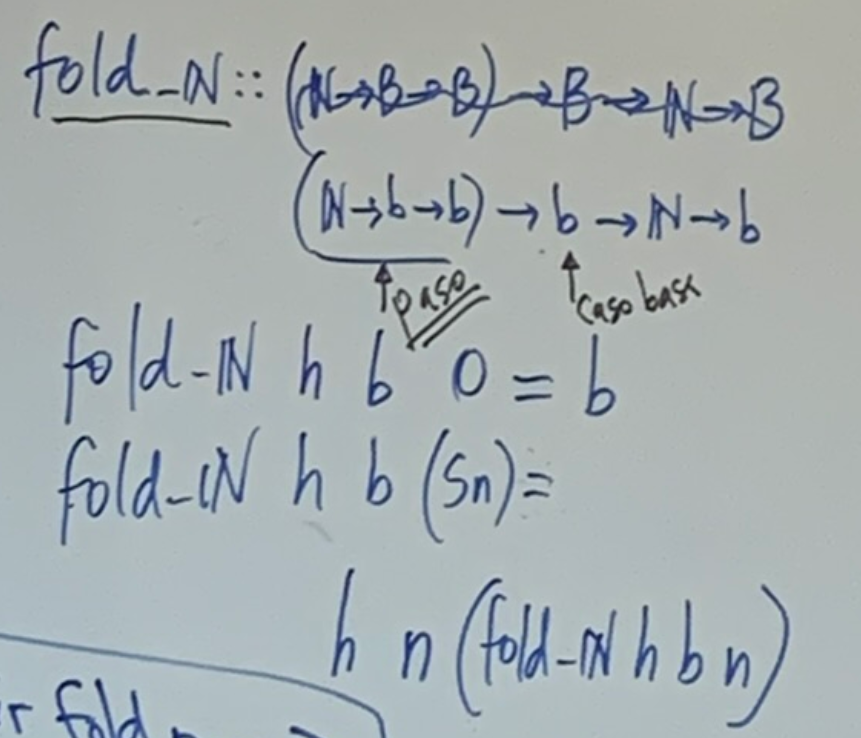 fold_ℕ :: (ℕ→B→B)→B→ℕ→B
(ℕ→b→b)→b→ℕ→b
paso caso base
fold-ℕ h b 0 = b
fold-ℕ h b (Sn)=
h n (fold-ℕ h b n)
r fold